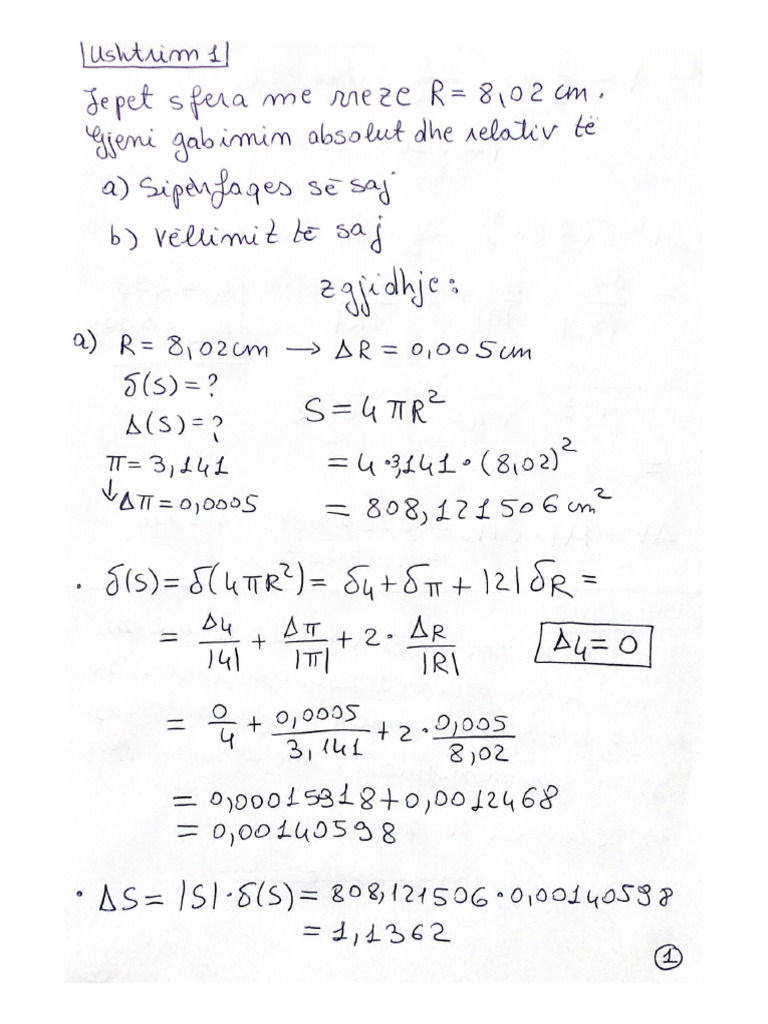 Ushtrim 1
Jepet sfera me rreze R = 8,02 cm.
Gjeni gabimin absolut dhe relativ të
a) Sipërfaqes së saj
b) Vëllimit të saj
zgjidhje:
a) R = 8,02 cm → ΔR = 0,005 cm
δ(S) = ?
Δ(S) = ?
S = 4πR²
π = 3,141
= 4·3,141·(8,02)²
↓ Δπ = 0,0005
= 808,121506 cm²
· δ(S) = δ(4πR²) = δ4 + δπ + |2| δR =
= Δ4/|4| + Δπ/|π| + 2·ΔR/|R|
Δ4 = 0
= 0/4 + 0,0005/3,141 + 2·0,005/8,02
= 0,00015918 + 0,0012468
= 0,00140598
· ΔS = |S|·δ(S) = 808,121506·0,00140598
= 1,1362
1